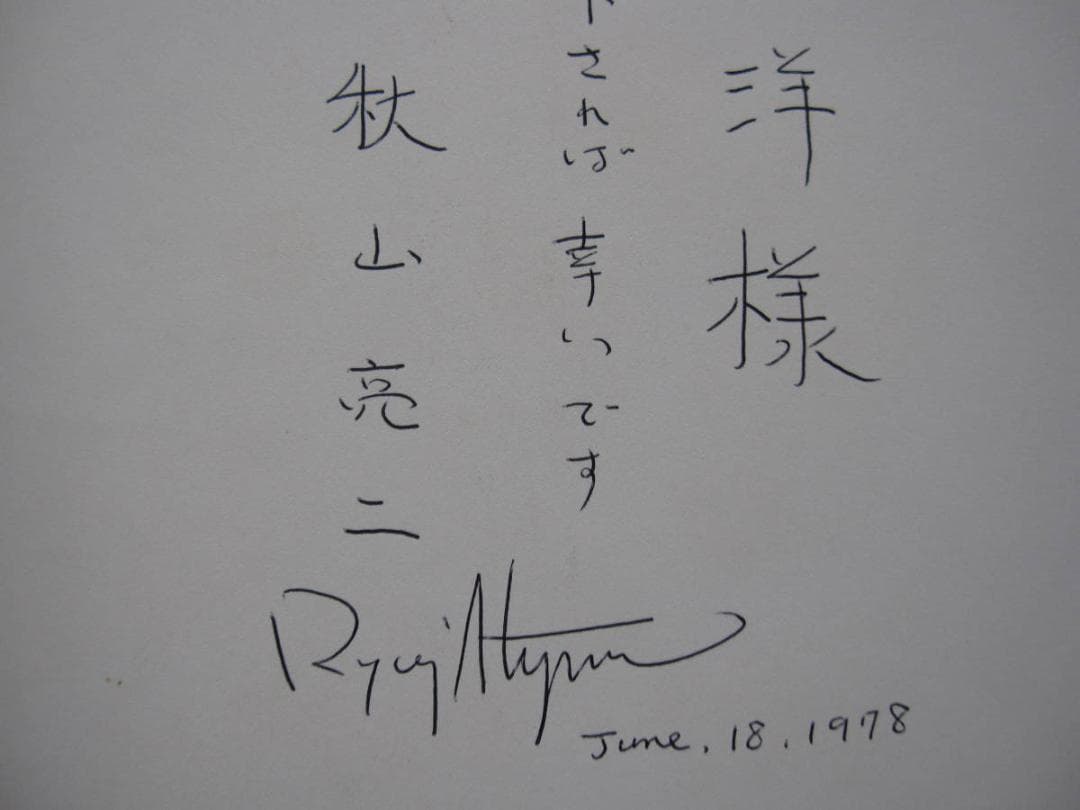 洋様
下されば幸いです
秋山亮二
Ryoji Akiyama
June. 18. 1978